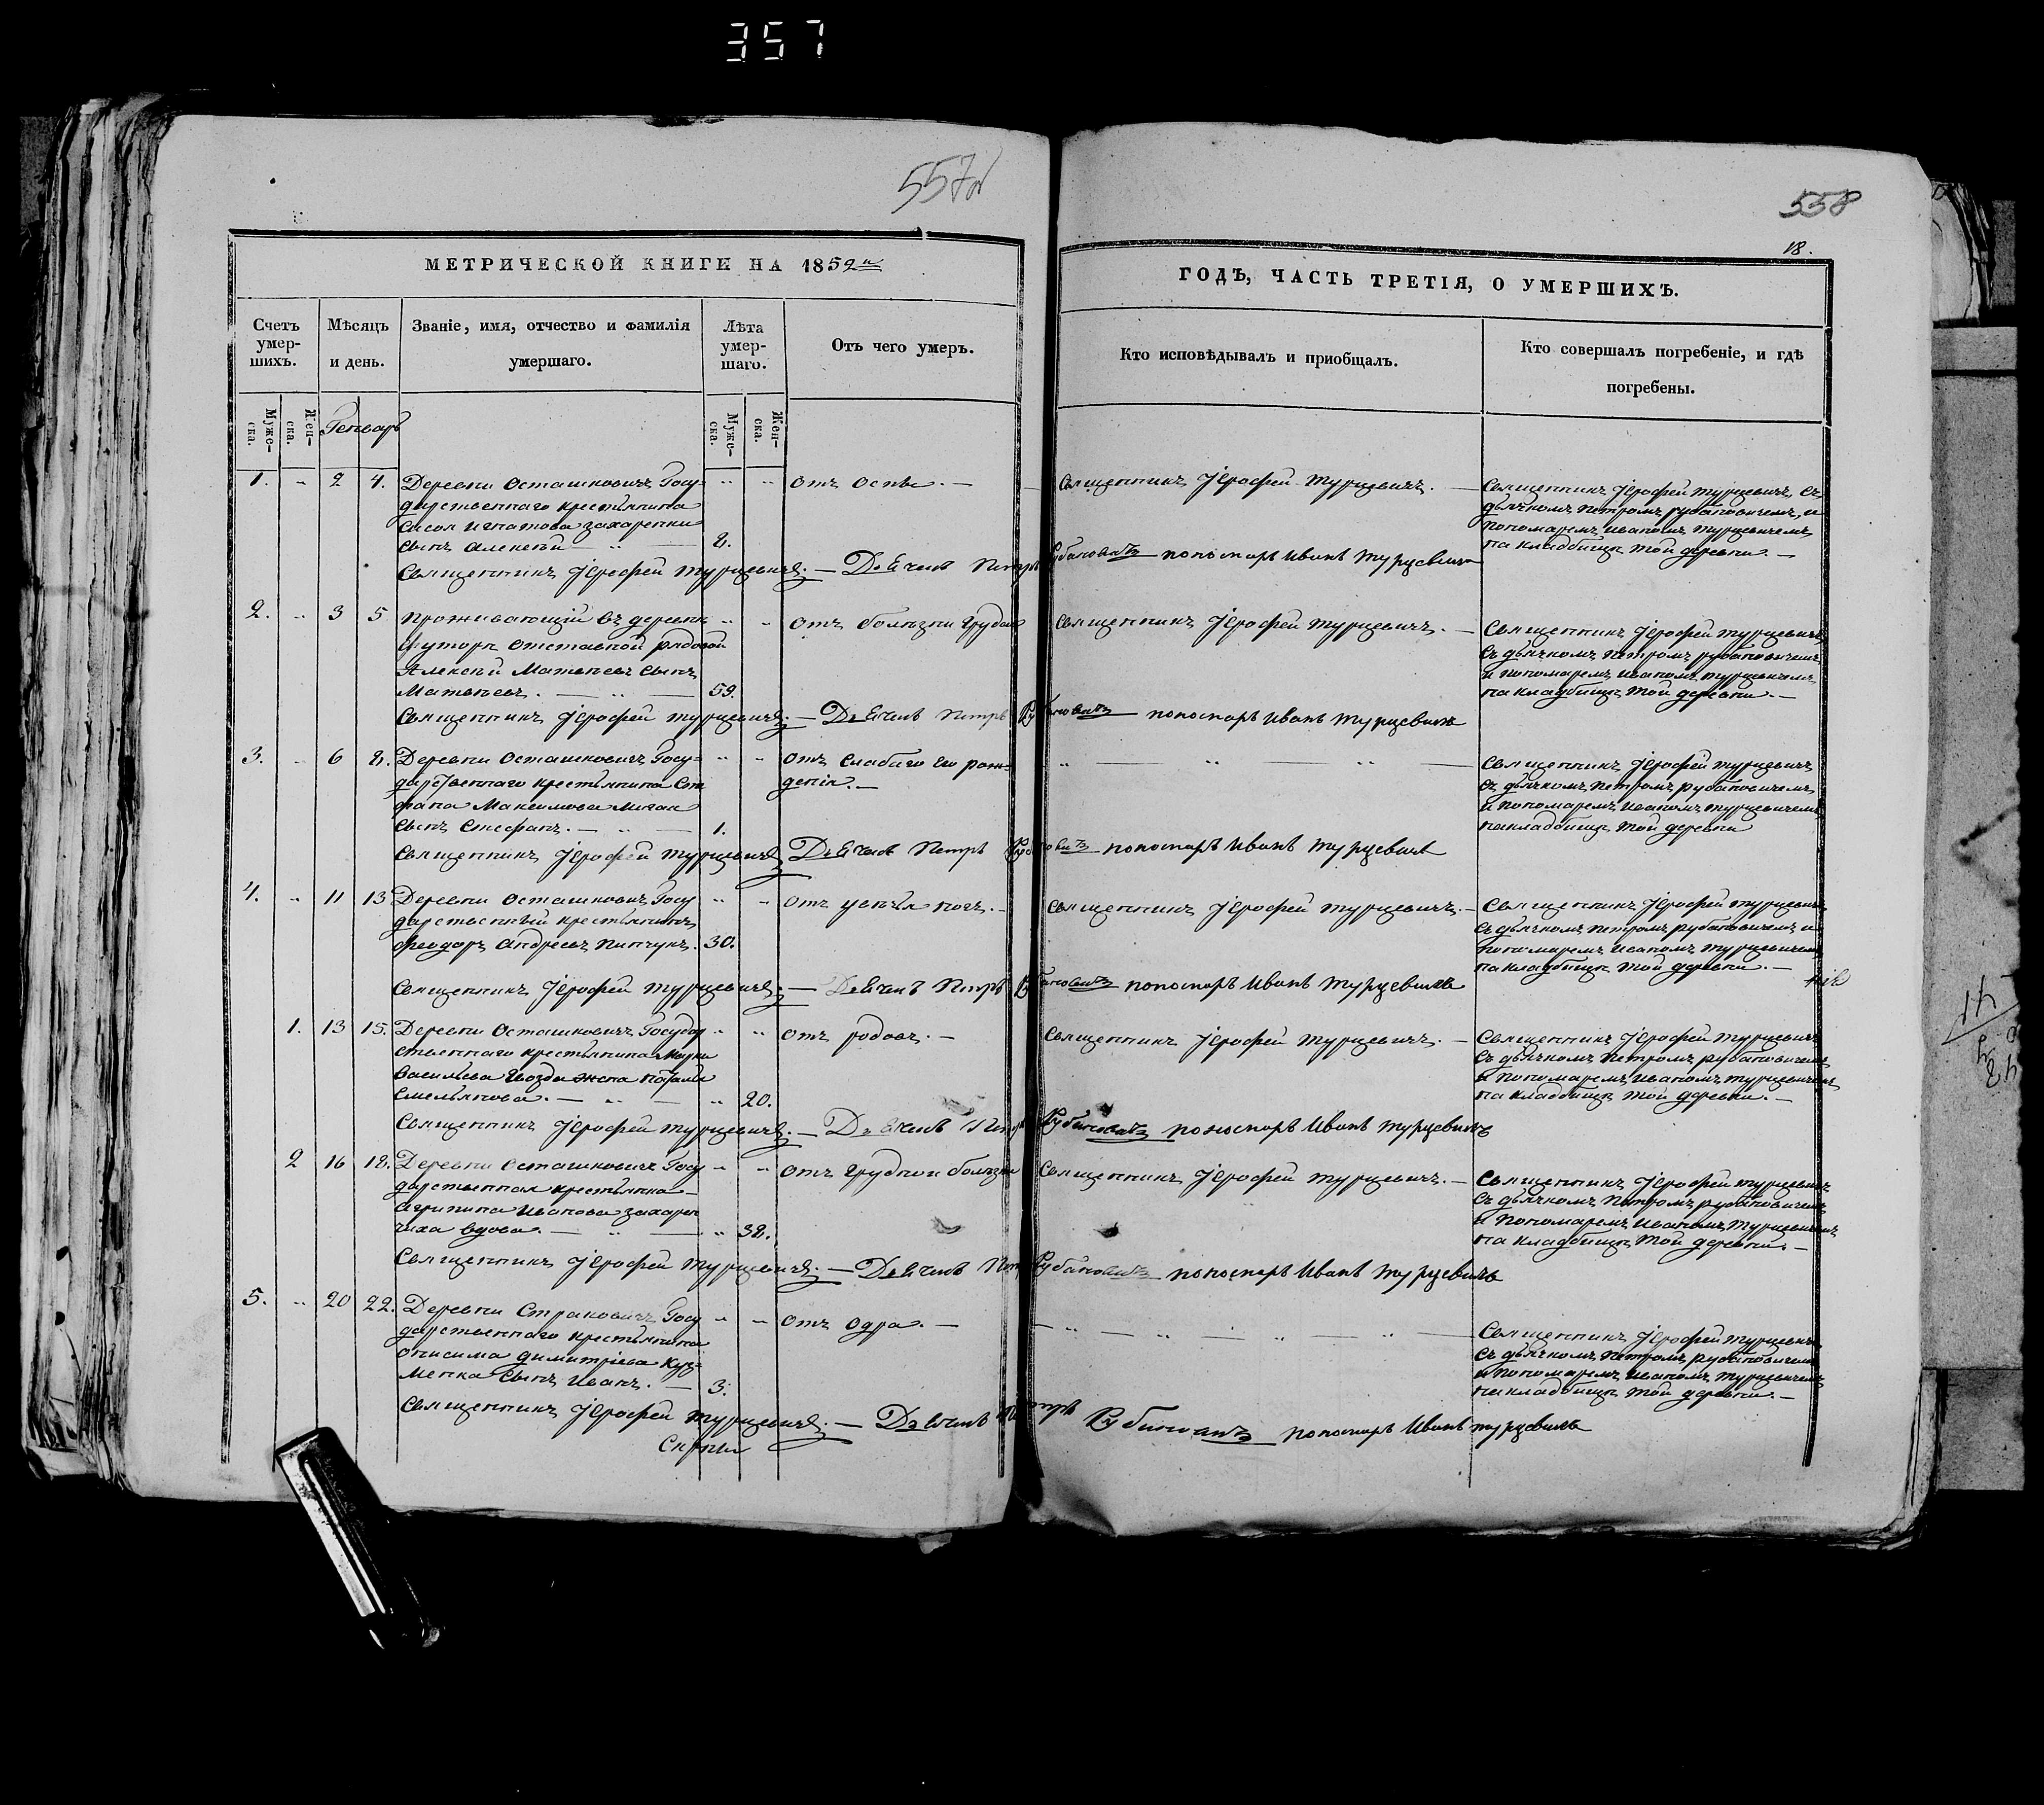 357
557
558
18.
МЕТРИЧЕСКОЙ КНИГИ НА 1852й
ГОДЪ, ЧАСТЬ ТРЕТІЯ, О УМЕРШИХЪ.
Счетъ умер-шихъ.
Мѣсяцъ и день.
Званіе, имя, отчество и фамилія умершаго.
Лѣта умер-шаго.
Отъ чего умеръ.
Кто исповѣдывалъ и приобщалъ.
Кто совершалъ погребеніе, и гдѣ погребены.
Муже-ска.
Жен-ска.
Генварь
Муже-ска.
Жен-ска.
1. „ 2 4. Деревни Осташковичъ Госу-
дарственнаго крестьянина
Сысоя Игнатова Захаренки
сынъ Алексѣй — „ — 8.
отъ оспы. —
Священникъ Іерофей Турцевичъ. —
Священникъ Іерофей Турцевичъ, съ
дьячкомъ Петромъ Рубановичемъ, и
пономаремъ Иваномъ Турцевичемъ
на кладбищѣ той деревни. —
Священникъ Іерофей Турцевичъ. — Дьячекъ Петръ Рубановичъ пономарь Иванъ Турцевичъ
2. „ 3 5 Проживающій въ деревнѣ
Хуторѣ отставной рядовой
Алексѣй Матвѣевъ сынъ
Матвѣевъ. — „ — 59.
отъ болѣзни грудной
Священникъ Іерофей Турцевичъ. —
Священникъ Іерофей Турцевичъ
съ дьячкомъ Петромъ Рубановичемъ
и пономаремъ Иваномъ Турцевичемъ
на кладбищѣ той деревни. —
Священникъ Іерофей Турцевичъ. — Дьячекъ Петръ Рубановичъ пономарь Иванъ Турцевичъ
3. „ 6 8. Деревни Осташковичъ Госу-
дарственнаго крестьянина Сте
фана Максимова
сынъ Стефанъ. — „ — 1.
отъ слабаго его рож-
денія. —
Священникъ Іерофей Турцевичъ
съ дьячкомъ Петромъ Рубановичемъ
и пономаремъ Иваномъ Турцевичемъ
на кладбищѣ той деревни
Священникъ Іерофей Турцевичъ Дьячекъ Петръ Рубановичъ пономарь Иванъ Турцевичъ
4. „ 11 13. Деревни Осташковичъ Госу
дарственный крестьянинъ
Феодоръ Андреевъ Пинчукъ. 30.
отъ ногъ. —
Священникъ Іерофей Турцевичъ. —
Священникъ Іерофей Турцевичъ
съ дьячкомъ Петромъ Рубановичемъ и
пономаремъ Иваномъ Турцевичемъ
на кладбищѣ той деревни. —
Священникъ Іерофей Турцевичъ. — Дьячекъ Петръ Рубановичъ пономарь Иванъ Турцевичъ
1. 13 15. Деревни Осташковичъ Государ
ственнаго крестьянина Марка
Васильева Гвозда жена Наталья
Емельянова. — „ — „ 20.
отъ родовъ. —
Священникъ Іерофей Турцевичъ. —
Священникъ Іерофей Турцевичъ
съ дьячкомъ Петромъ Рубановичемъ
и пономаремъ Иваномъ Турцевичемъ
на кладбищѣ той деревни. —
Священникъ Іерофей Турцевичъ. — Дьячекъ Петръ Рубановичъ пономарь Иванъ Турцевичъ
2 16 18. Деревни Осташковичъ Госу
дарственная крестьянка —
Агрипина Иванова Захарен
чиха вдова. — „ — „ 38.
отъ грудной болѣзни
Священникъ Іерофей Турцевичъ. —
Священникъ Іерофей Турцевичъ
съ дьячкомъ Петромъ Рубановичемъ
и пономаремъ Иваномъ Турцевичемъ
на кладбищѣ той деревни. —
Священникъ Іерофей Турцевичъ. — Дьячекъ Петръ Рубановичъ пономарь Иванъ Турцевичъ
5. „ 20 22. Деревни Страковичъ Госу
дарственнаго крестьянина
Онисима Димитріева Куз-
менка сынъ Иванъ. — 3.
отъ одра. —
Священникъ Іерофей Турцевичъ
съ дьячкомъ Петромъ Рубановичемъ
и пономаремъ Иваномъ Турцевичемъ
на кладбищѣ той деревни. —
Священникъ Іерофей Турцевичъ. — Дьячекъ Петръ Рубановичъ пономарь Иванъ Турцевичъ